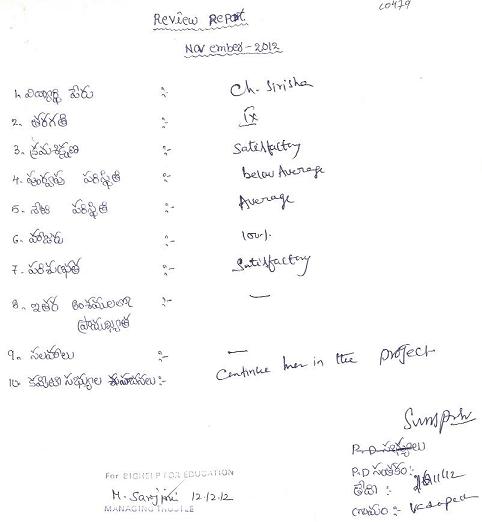 C0479
Review Report
November-2012
1. విద్యార్థి పేరు :- Ch. Sirisha
2. తరగతి :- IX
3. క్రమశిక్షణ :- Satisfactory
4. పూర్వపు పరిస్థితి :- below Average
5. నేటి పరిస్థితి :- Average
6. హాజరు :- 100%
7. పరిశుభ్రత :- Satisfactory
8. ఇతర అంశములలో :- —
ప్రాముఖ్యత
9. సలహాలు :- —
10. కమిటి సభ్యుల సూచనలు :- Continue her in the project
P.D సభ్యులు
P.D సంతకం :-
తేది :-
గ్రామం :-
For BIGHELP FOR EDUCATION
M. Sarojini 12/12/12
MANAGING TRUSTEE